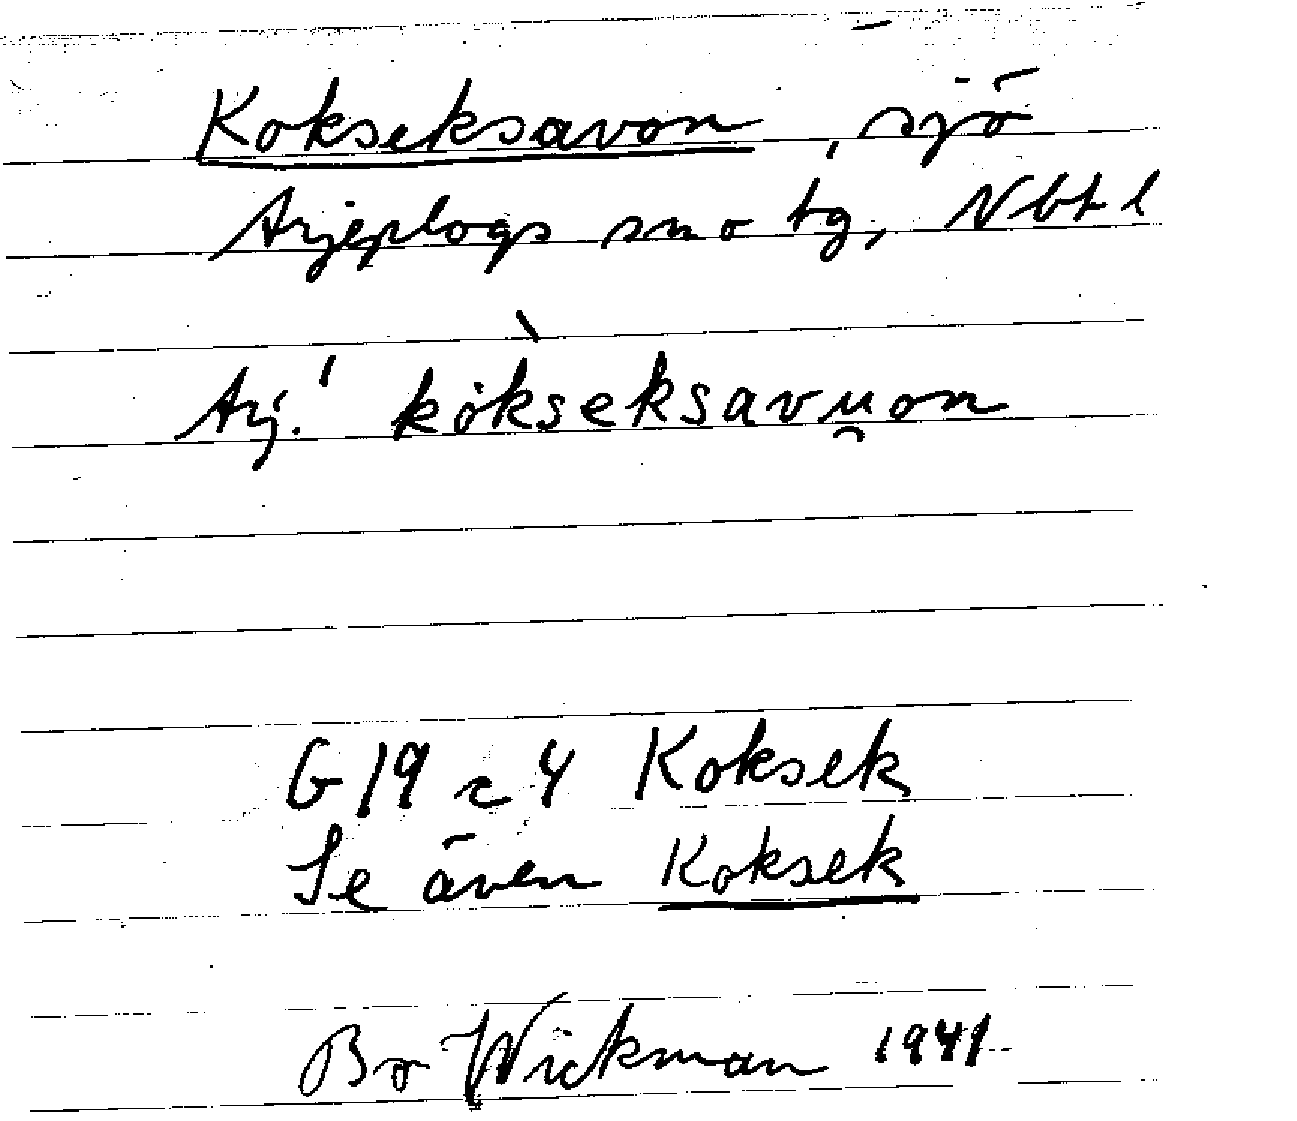 Kokseksavon, sjö
Arjeplogs sn o tg, Nbtl
Arj.' kȯ̀kseksavu̯on
G19 c 4 Koksek
Se även Koksek
Bo Wickman 1941